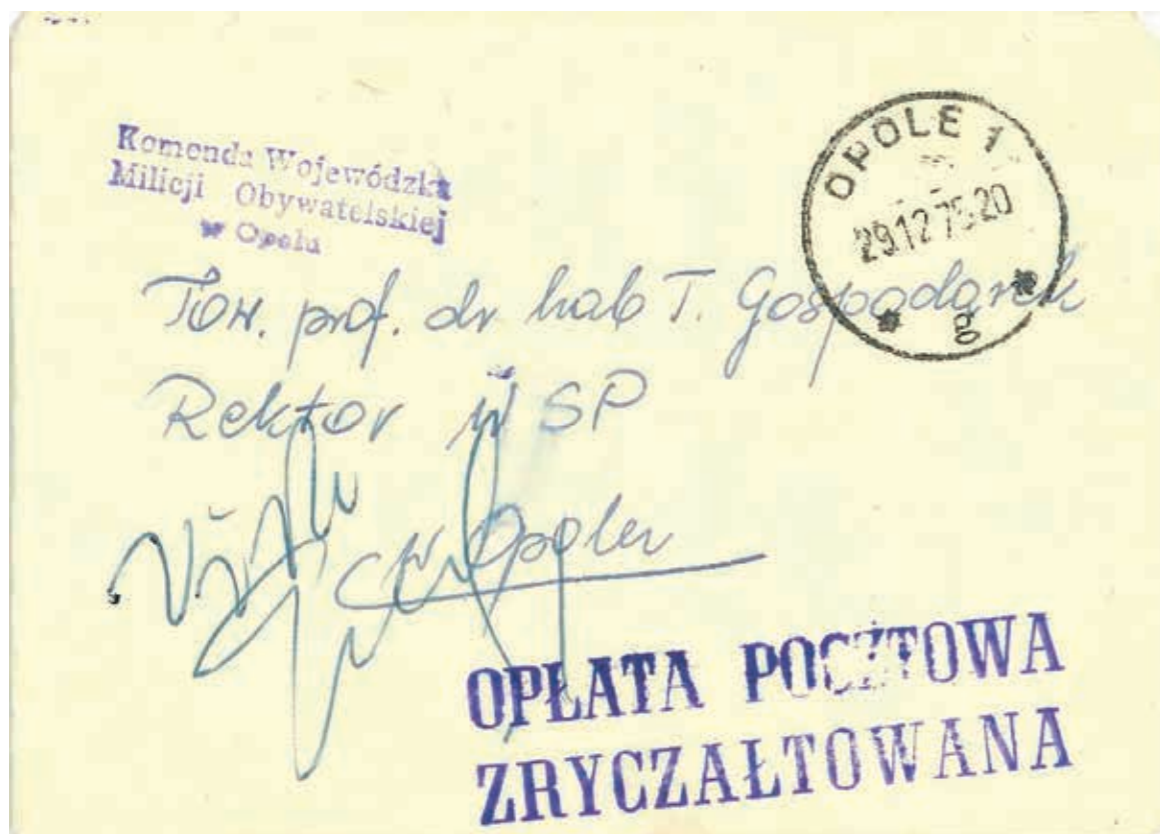 Komenda Wojewódzka
Milicji Obywatelskiej
w Opolu
OPOLE 1
29.12.75.20
g
Tow. prof. dr hab T. Gospodarek
Rektor WSP
w Opolu
OPŁATA POCZTOWA
ZRYCZAŁTOWANA